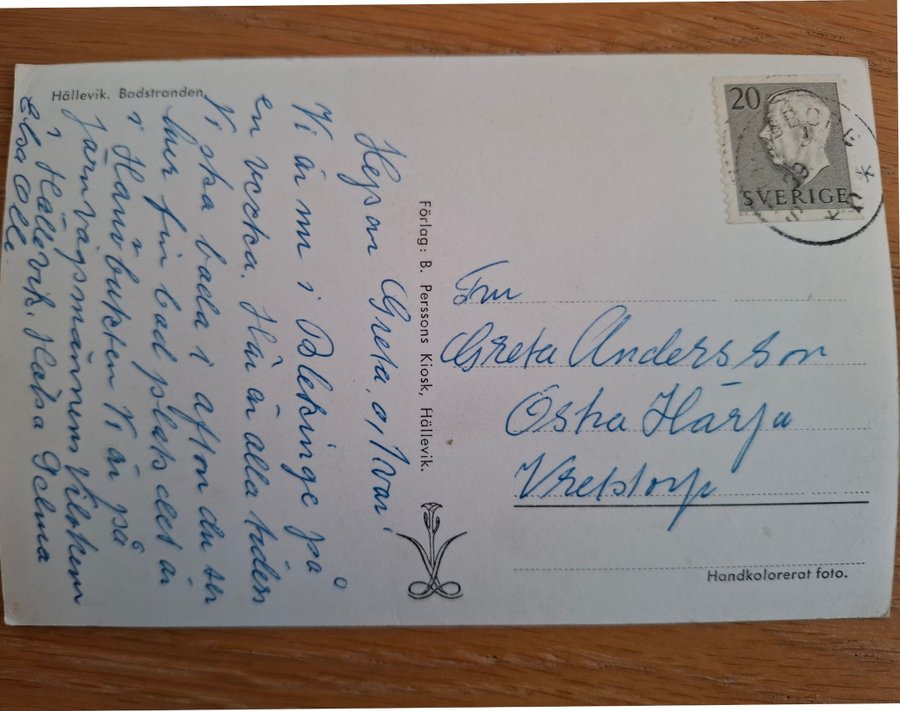 Hällevik. Badstranden.
Hejsan Greta, o, Ivar!
Vi är nu i Blekinge på
en vecka. Här är alla tiders
Vi ska bada i afton du ser
hur fin badplats det är
i Hanöbukten Vi är på
Järnvägsmännens Vilohem
i Hällevik. Hälsa Delma
Elsa Olle
Förlag: B. Perssons Kiosk, Hällevik.
20
SVERIGE
Fru
Greta Andersson
Östra Härja
Vretstorp
Handkolorerat foto.